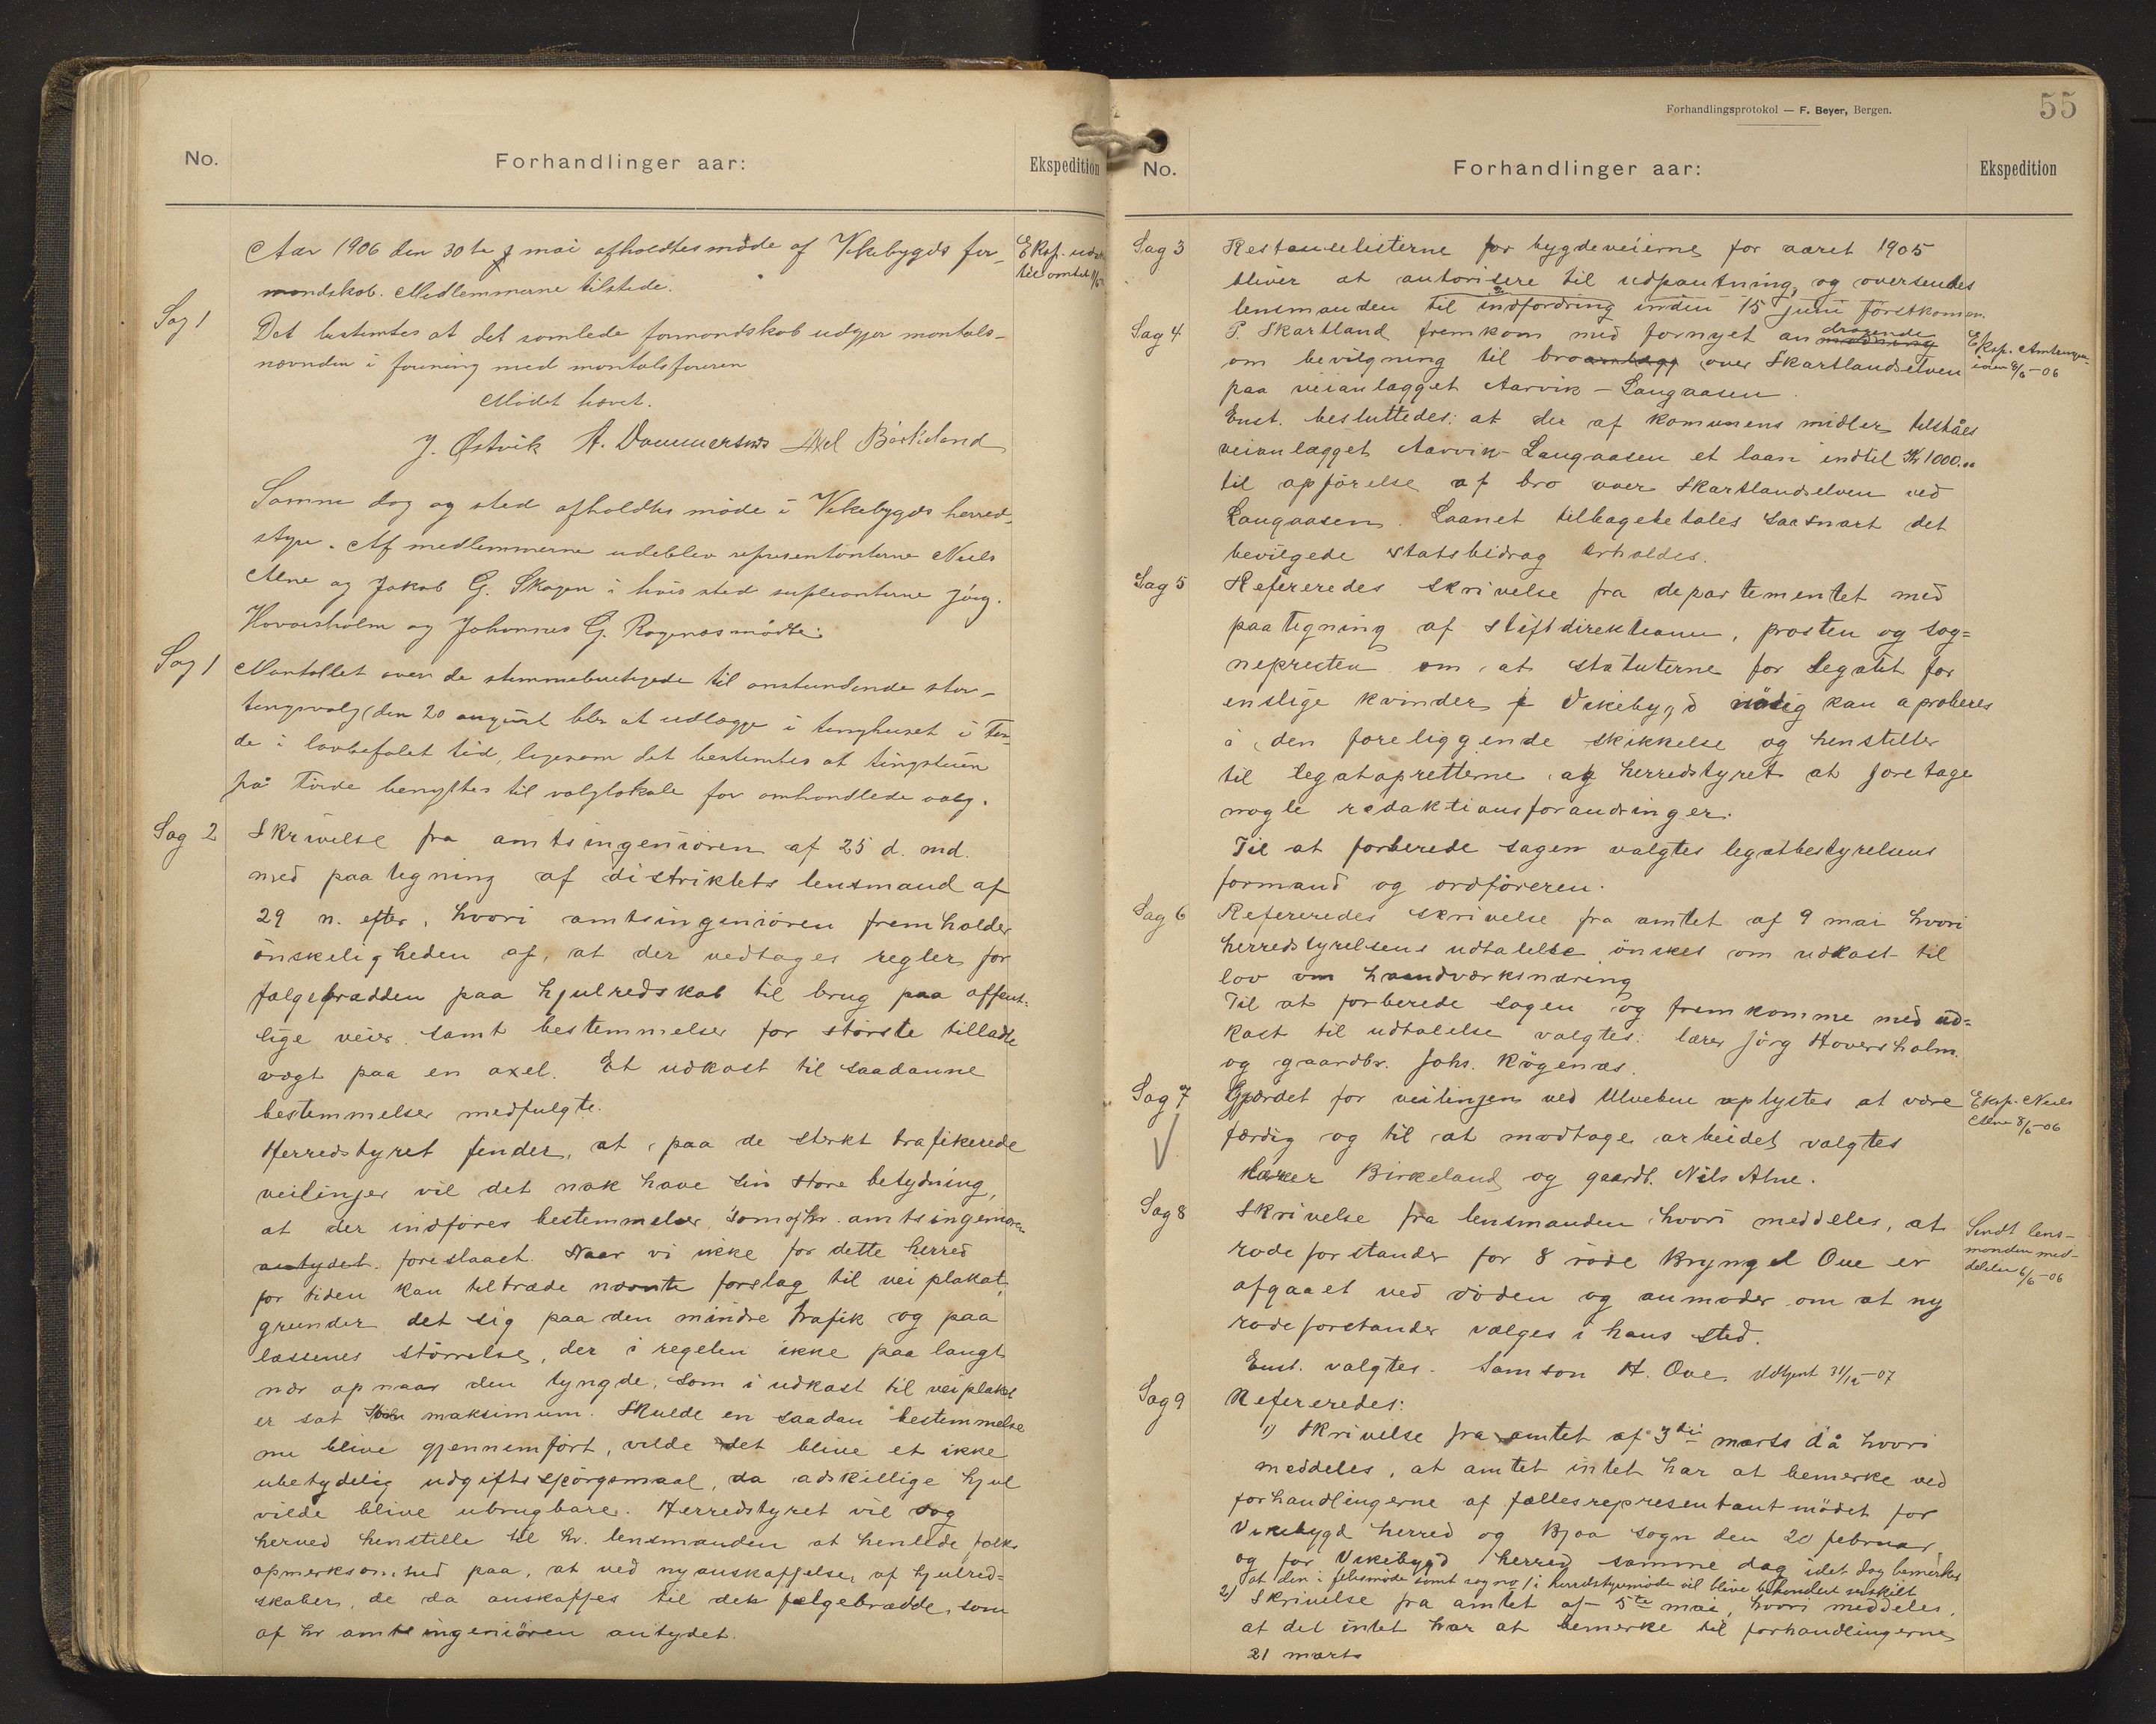 No.
Forhandlinger aar:
Ekspedition
Aar 1906 den 30te mai afholdtes möde af Vikebygds for-
mandskab. Medlemmerne tilstede.
Eksp. udsk.
til amtet
Sag 1
Det bestemtes at det samlede formandskab udgjør mantals-
nævnden i forening med mantalsføreren
Mödet hævet.
J. Østvik A. Dommersnes Axel Birkeland
Samme dag og sted afholdtes möde i Vikebygds herred-
styre. Af medlemmerne udeblev representanterne Niels
Alne og Jakob G. Skogen i hvis sted supleanterne Jörg.
Hovarsholm og Johannes G. Røgenæs mödte.
Sag 1
Mantallet over de stemmeberettigede til anstundende stor-
tingsvalg (den 20 august blev at udlægge i tinghuset i Tør-
de i lovbefalet tid, ligesom det bestemtes at tingstuen
på Törde benyttes til valglokale for omhandlede valg.
Sag 2
Skrivelse fra amtsingeniören af 25 d. md.
med paategning af distriktets lensmand af
29 n. efter, hvori amtsingeniören fremholder
önskeligheden af, at der vedtages regler for
fælgebrædden paa hjulredskab til brug paa offent-
lige veier samt bestemmelser for störste tilladte
vægt paa en axel. Et udkast til saadanne
bestemmelser medfulgte.
Herredstyret finder, at paa de sterkt trafikerede
veilinjer vil det nok have sin store betydning,
at der indföres bestemmelser som af hr. amtsingeniören
antydet. foreslaaet. Naar vi ikke for dette herred
for tiden kan tiltræde nævnte forslag til veiplakat,
grunder det sig paa den mindre trafik og paa
læssenes störrelse, der i regelen ikke paa langt
nær opnaar den tyngde, som i udkast til veiplakat
er sat som maksimum. Skulde en saadan bestemmelse
nu blive gjennemfört, vilde det blive et ikke
ubetydelig udgiftsspörgsmaal, da adskillige hjul
vilde blive ubrugbare. Herredstyret vil dog
herved henstille til hr. lensmanden at henlede folks
opmerksomhed paa, at ved nyanskaffelse af hjulred-
skaber, de da anskaffes til den fælgebrædde, som
af hr amtsingeniören antydet.
Forhandlingsprotokol — F. Beyer, Bergen.
55
No.
Forhandlinger aar:
Ekspedition
Sag 3
Restancelisterne for bygdeveierne for aaret 1905
bliver at autorisere til udpantning, og oversendes
lensmanden til indfordring inden 15 juni förstkomm.
Sag 4
P. Skartland fremkom med fornyet an modning dragende
om bevilgning til broanlægg over Skartlandselven
paa veianlægget Aarvik - Langaasen.
Eksp. Amtsingen-
iören 8/6-06
Enst. besluttedes: at der af komunens midler tilståes
veianlægget Aarvik-Langaasen et laan indtil Kr 1000.00
til opförelse af bro over Skartlandselven ved
Langaasen. Laanet tilbagebetales saasnart det
bevilgede statsbidrag erholdes.
Sag 5
Refereredes skrivelse fra departementet med
paategning af stiftdirektionen, prosten og sog=
nepresten om, at statuterne for legatet for
enslige kvinder i Vikebygd kan aproberes
i den foreliggende skikkelse og henstiller
til legatopretterne og herredstyret at foretage
nogle redaktionsforandringer.
Til at forberede sagen valgtes legatbestyrelsens
formand og ordföreren.
Sag 6
Refereredes skrivelse fra amtet af 9 mai hvori
herredstyrelsens udtalelse önskes om udkast til
lov om haandværksnæring
Til at forberede sagen og fremkomme med ud-
kast til udtalelse valgtes: lærer Jörg Hoversholm.
og gaardbr. Johs. Rögenæs.
Sag 7
Gjærdet for veilinjen ved Ulveben oplystes at være
færdig og til at modtage arbeidet valgtes
kirker Birkeland og gaardb. Nils Alne.
Eksp. Niels
Alne 8/6-06
Sag 8
Skrivelse fra lensmanden hvori meddeles, at
rodeforstander for 8 rode Bryngel Ove er
afgaaet ved döden og anmoder om at ny
rodeforstander vælges i hans sted.
Enst. valgtes. Samson H. Ove. Udtjent 31/12-07
Sendt lens-
manden med-
delelse 6/6-06
Sag 9
Refereredes:
1) Skrivelse fra amtet af 3die marts då hvori
meddeles, at amtet intet har at bemerke ved
forhandlingerne af fællesrepresentantmödet for
Vikebygd herred og Bjoa sogn den 20 februar
og for Vikebygd herred samme dag idet dog bemerkes
at den i fællesmöde samt sag no 1 i herredstyremöde vil blive behandlet særskilt
2) Skrivelse fra amtet af 5te mai, hvori meddeles,
at det intet har at bemerke til forhandlingerne
21 marts